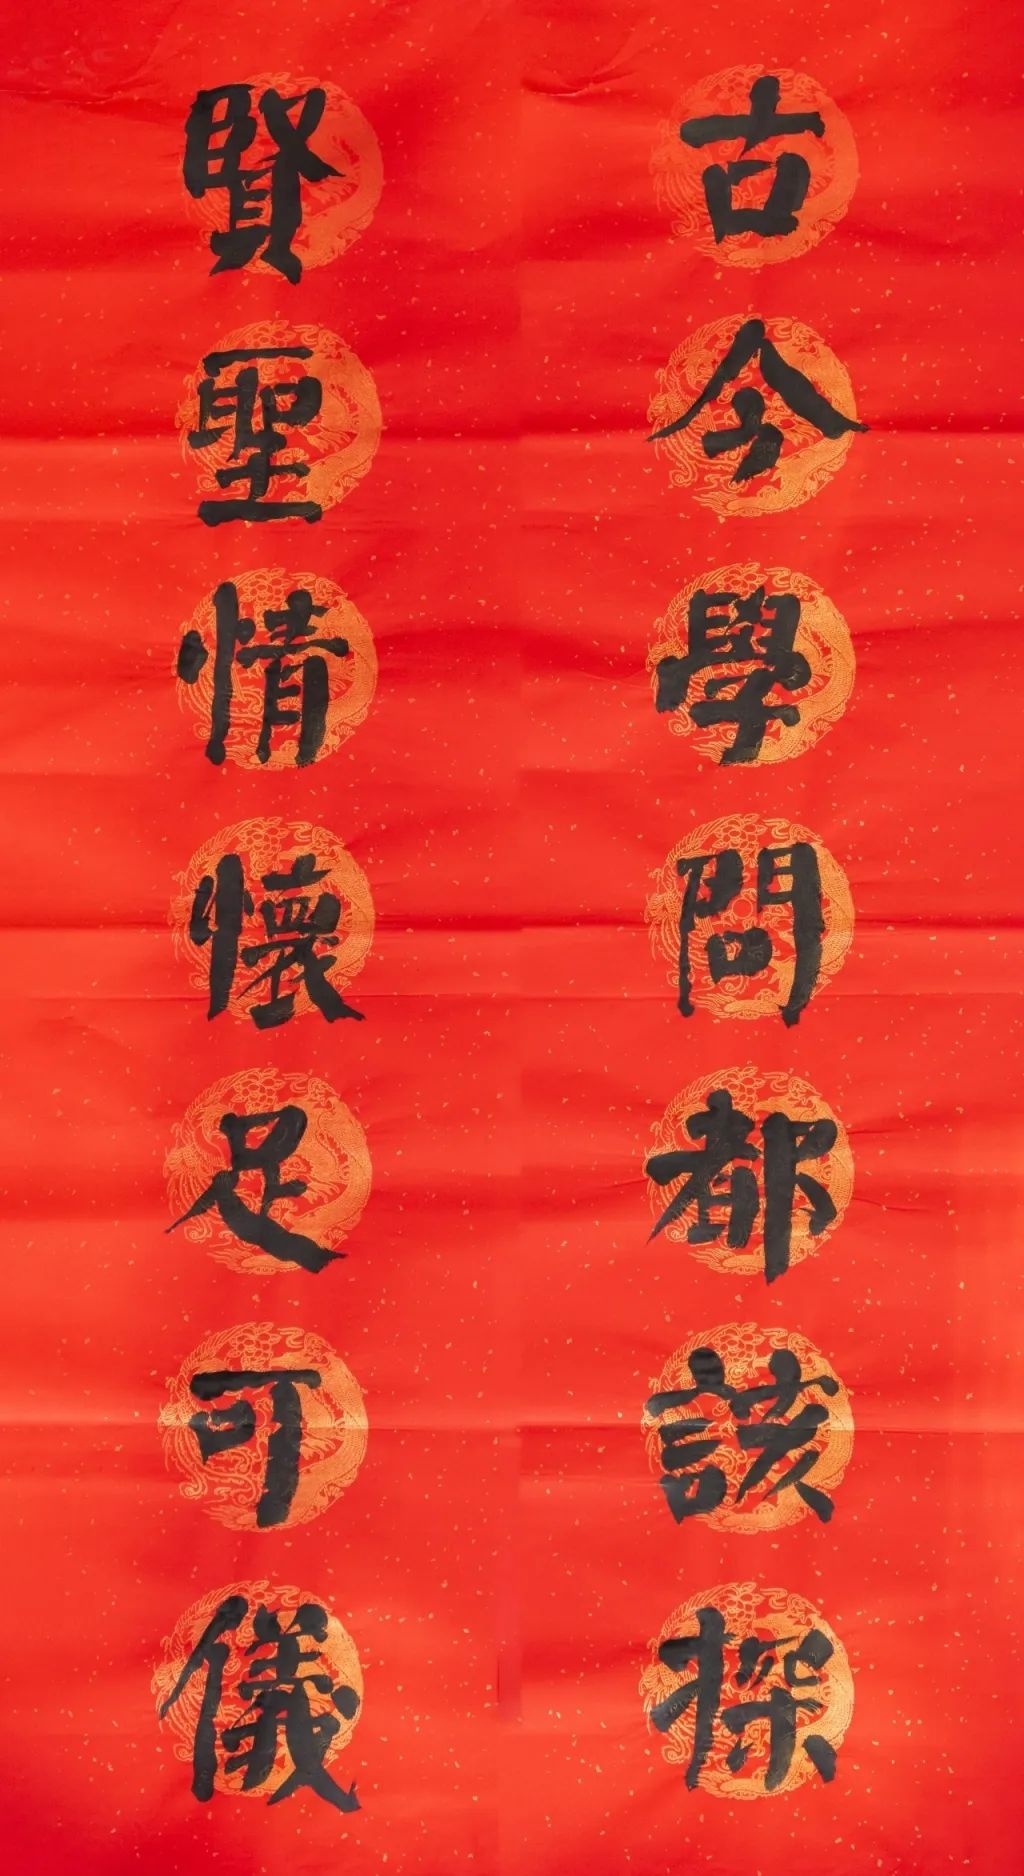 古今學問都該探
賢聖情懷足可儀